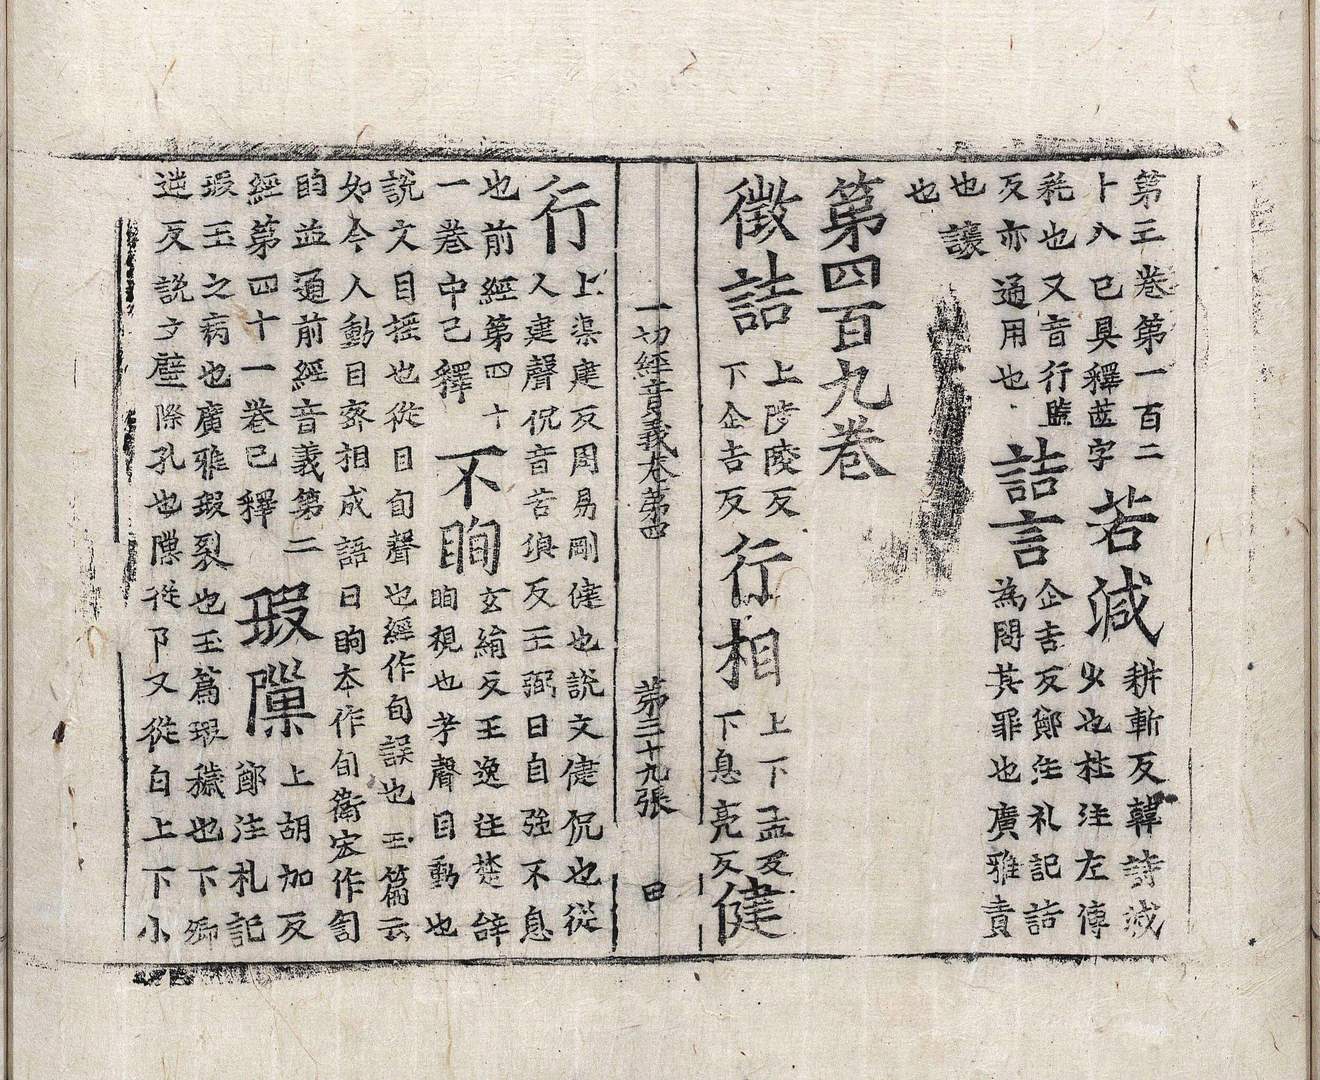 第三巻第一百二
卜八已具釋葢字
若減
耕斬反韓詩減
少也杜注左傳
耗也又音行監
反亦通用也
詰言
企吉反鄭注礼記詰
為問其罪也廣雅責
也讓
也
第四百九巻
徴詰
上陟陵反
下企吉反
行相
上下孟反
下息亮反
健
一切經音義巻第四
第三十九張
曰
行
上渠建反周易剛健也說文健伉也從
人建聲伉音苦浪反王弼曰自強不息
也前經第四十
一巻中已釋
不眴
玄絢反王逸注楚辝
眴視也考聲目動也
說文目揺也從目旬聲也經作旬誤也玉篇云
如今人動目宻相成語曰眴本作旬衛宏作訇
眴並通前經音義第二
經第四十一巻已釋
瑕隟
上胡加反
鄭注礼記
瑕玉之病也廣雅瑕裂也玉篇瑕穢也下卿
逆反說文壁際孔也隟從阝又從白上下小